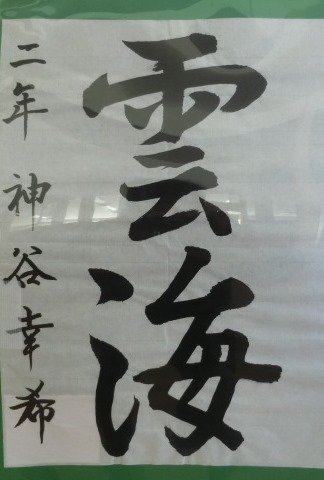 雲海
二年 神谷幸希